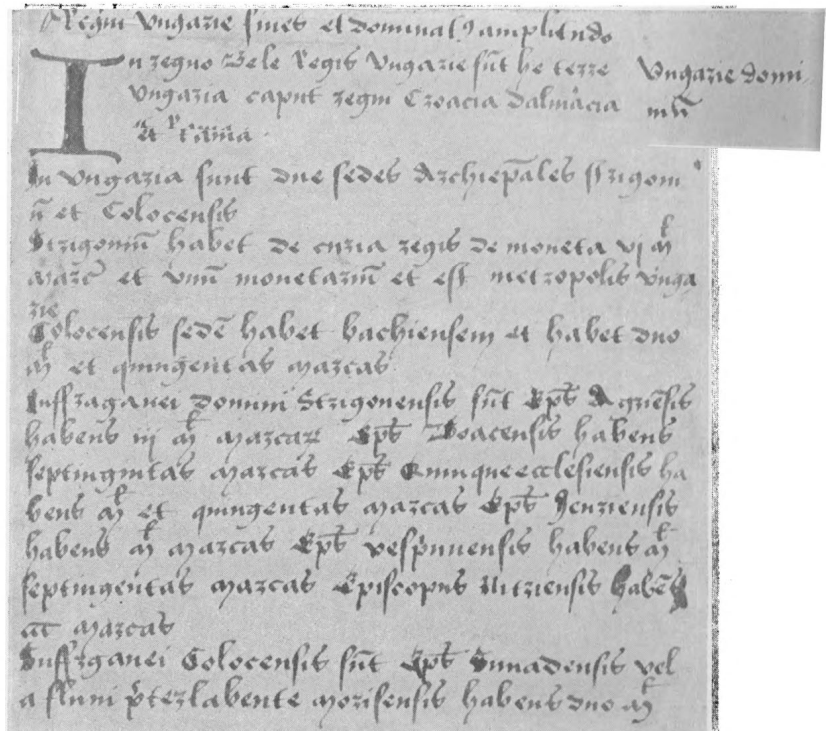 Regni Vngarie fines et dominat9 amplitudo
In regno Bele Regis Vngarie sūt he terre
Vngaria caput regni Croacia dalmacia
et rama
Vngarie domi
niū
In vngaria sunt due sedes Archiep̄ales strigoni
ū et Colocensis
Strigoniū habet de curia regis de moneta vj ml
marc̄ et vnū monetariū et est metropolis vnga
rie
Colocensis sedē habet bachiensem et habet duo
ml et quingentas marcas
Suffraganei domini Strigonensis sūt Ep̄s Agriēsis
habens iij ml marcar Ep̄s Boacensis habens
septingintas marcas Ep̄s Quinqueecclesiensis ha
bens ml et quingentas marcas Ep̄s Jeuriensis
habens ml marcas Ep̄s vesprinensis habens ml
septingentas marcas Episcopus Nitriensis habēs
marcas
Suffrganei Colocensis sūt Ep̄s Sunadensis vel
a fluui p̄terlabente morisensis habens duo ml